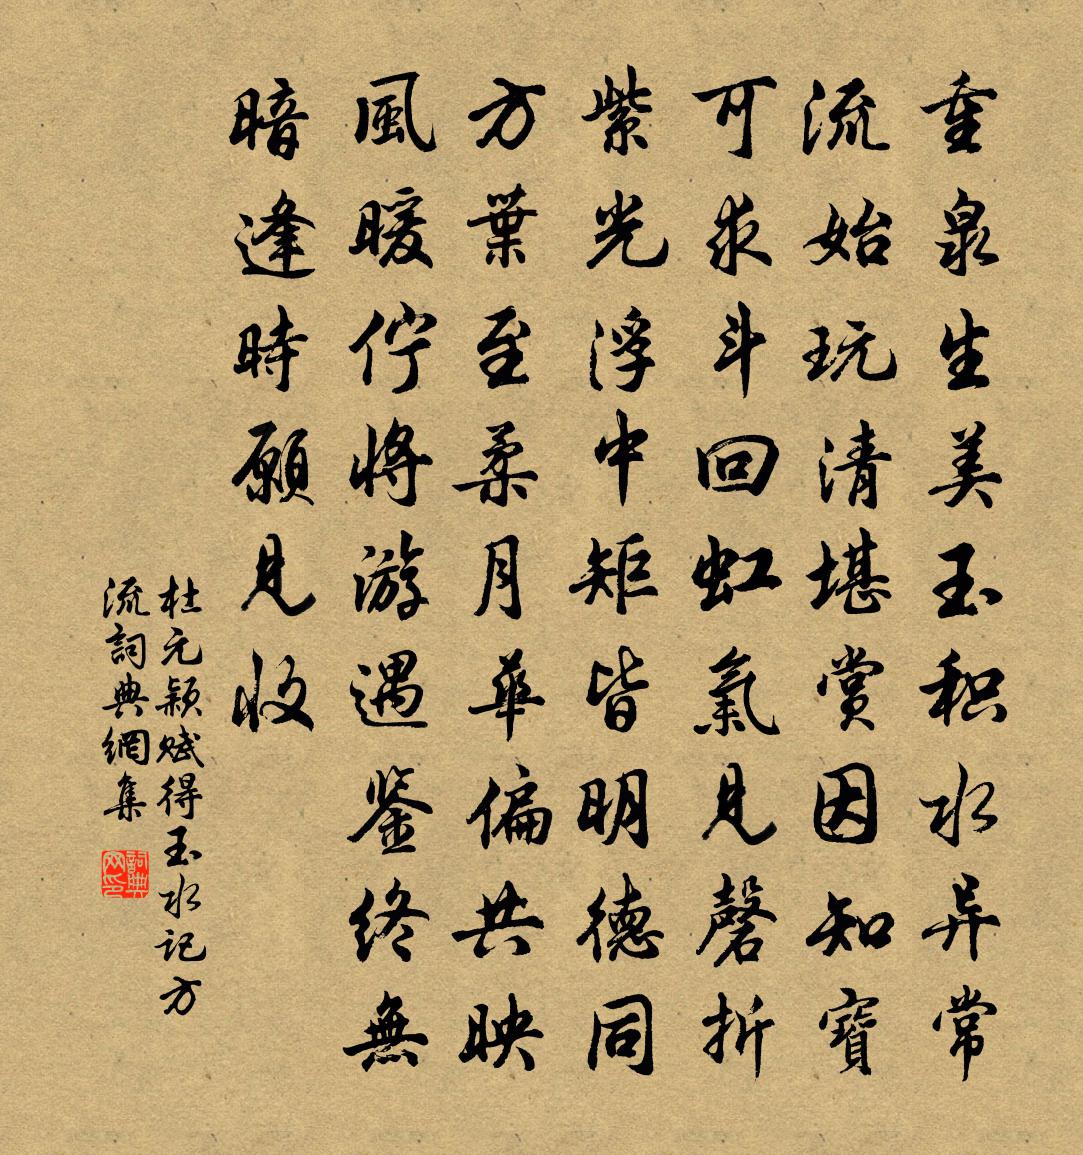 重泉生美玉积水异常
流始玩清堪赏因知寶
可求斗回虹氣見磬折
紫光浮中矩皆明德同
方葉至柔月華偏共映
風暖佇將游遇鉴终無
暗逢時願見收
杜元颖赋得玉水记方
流詞典網集
詞典网印